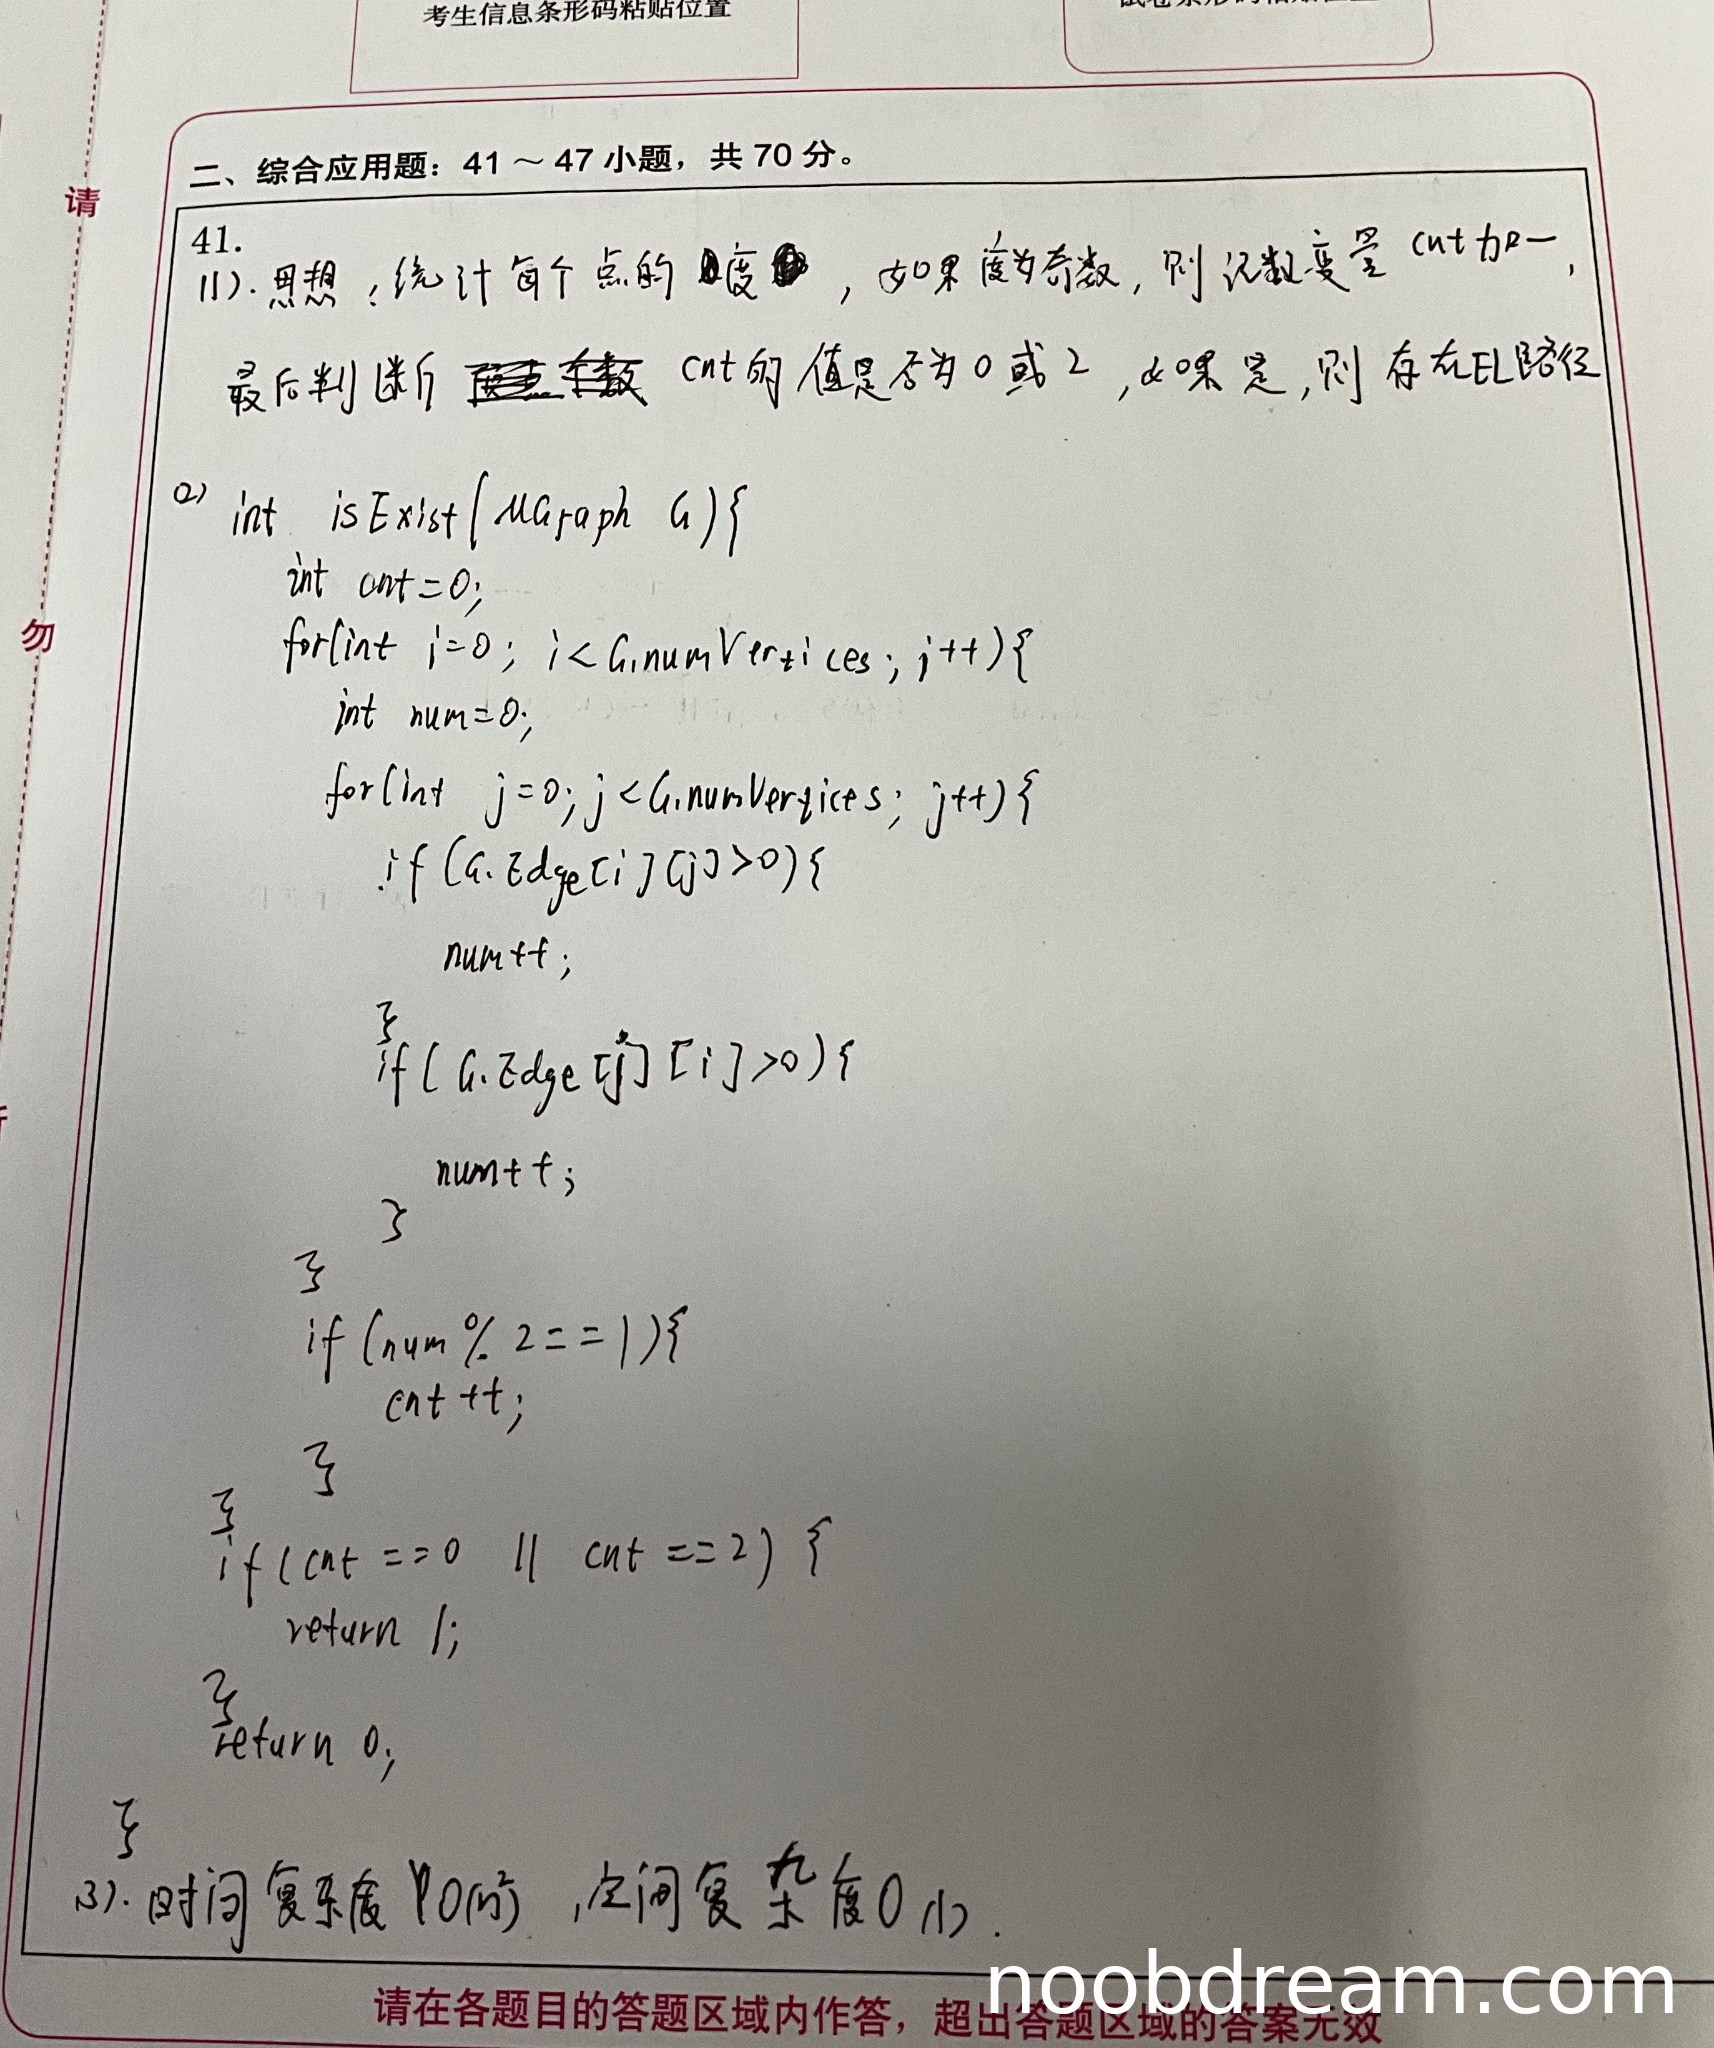 考生信息条形码粘贴位置
二、综合应用题：41 ～ 47 小题，共 70 分。
请
勿
41.
(1). 思想：统计每个点的度，如果度为奇数，则记数变量 cnt 加一，
最后判断 cnt 的值是否为 0 或 2，如果是，则存在EL路径
(2) int isExist(MGraph G){
int cnt=0;
for(int i=0; i<G.numVertices; i++){
int num=0;
for(int j=0; j<G.numVertices; j++){
if(G.Edge[i][j]>0){
num++;
}
if(G.Edge[j][i]>0){
num++;
}
}
if(num%2==1){
cnt++;
}
}
if(cnt==0 || cnt==2){
return 1;
}
return 0;
}
(3). 时间复杂度 O(n²)，空间复杂度O(1).
请在各题目的答题区域内作答，超出答题区域的答案无效
noobdream.com